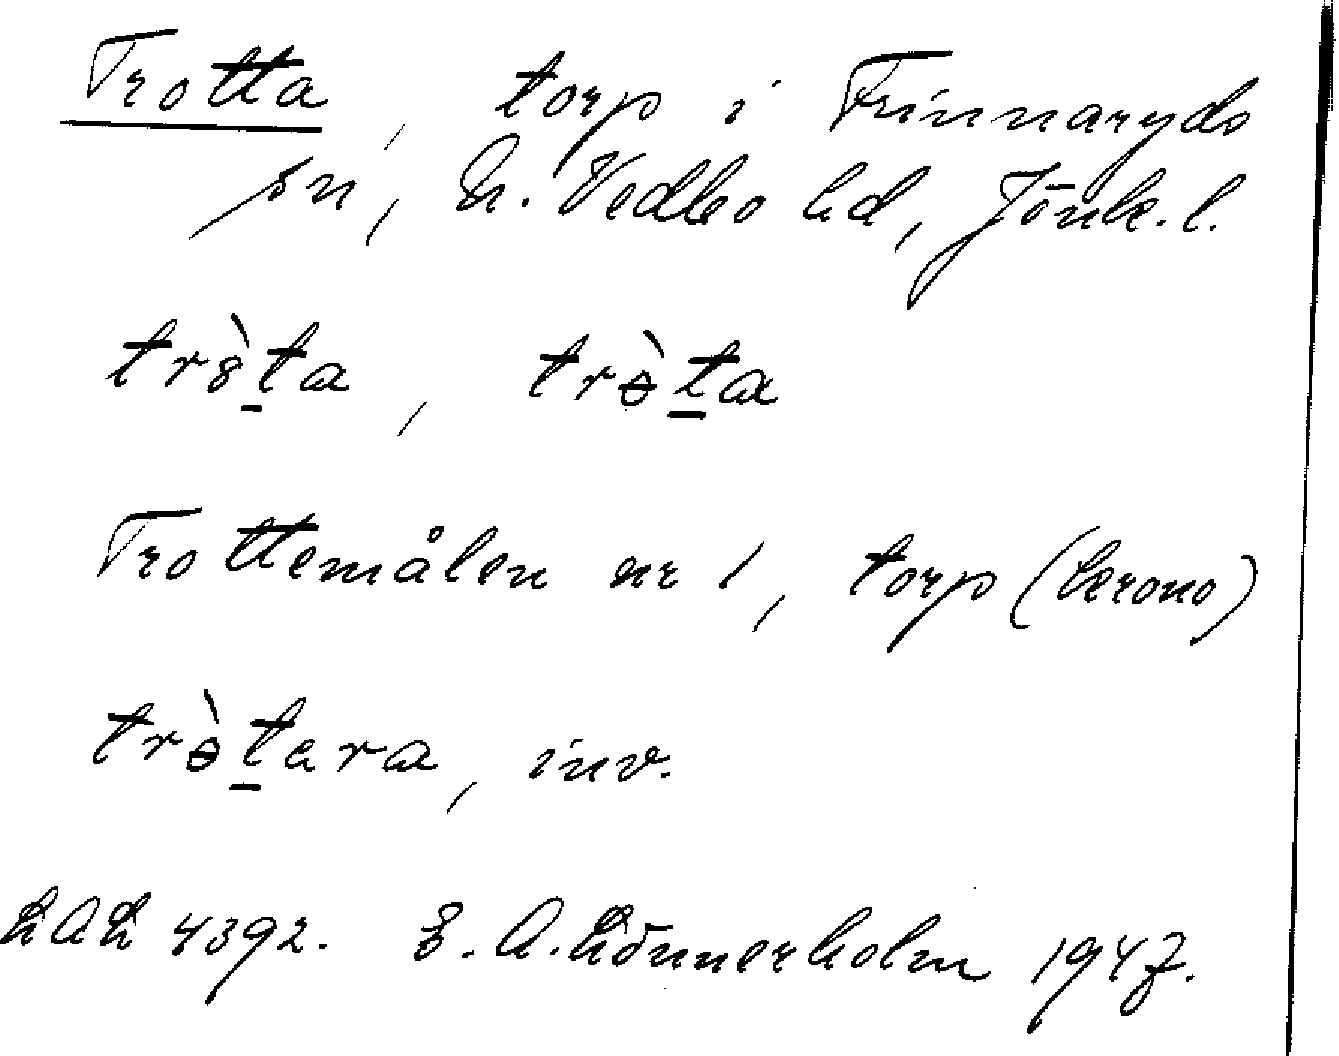 Trotta, torp i Frinnaryds
sn, N. Vedbo hd, Jönk. l.
trò̱ta, trɵ̀ṯa
Trottemålen nr 1, torp (berono)
trɵ̀ṯara, inv.
LAL 4392. E. A. Lönnerholm 1947.